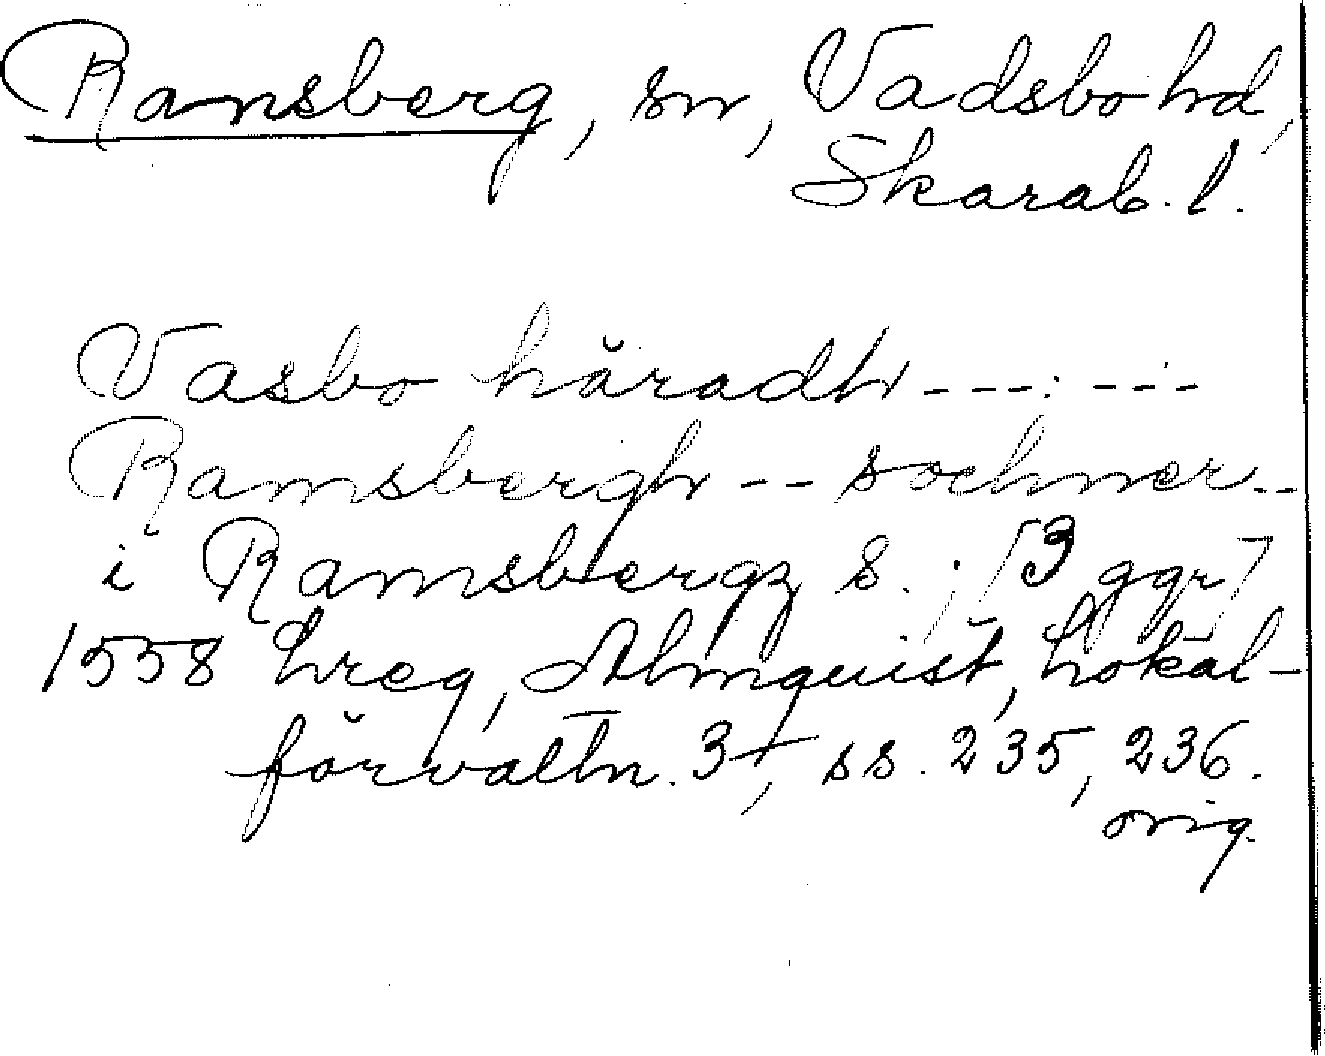 Ransberg, sn, Vadsbo hd,
Skarab. l.
Vasbo häradh ---:---
Ramsbergh -- sochner--
i Ramsbergz s. ; [3 ggr]
1558 hreg, Almquist, Lokal-
förvaltn. 3†, ss. 235, 236.
orig.